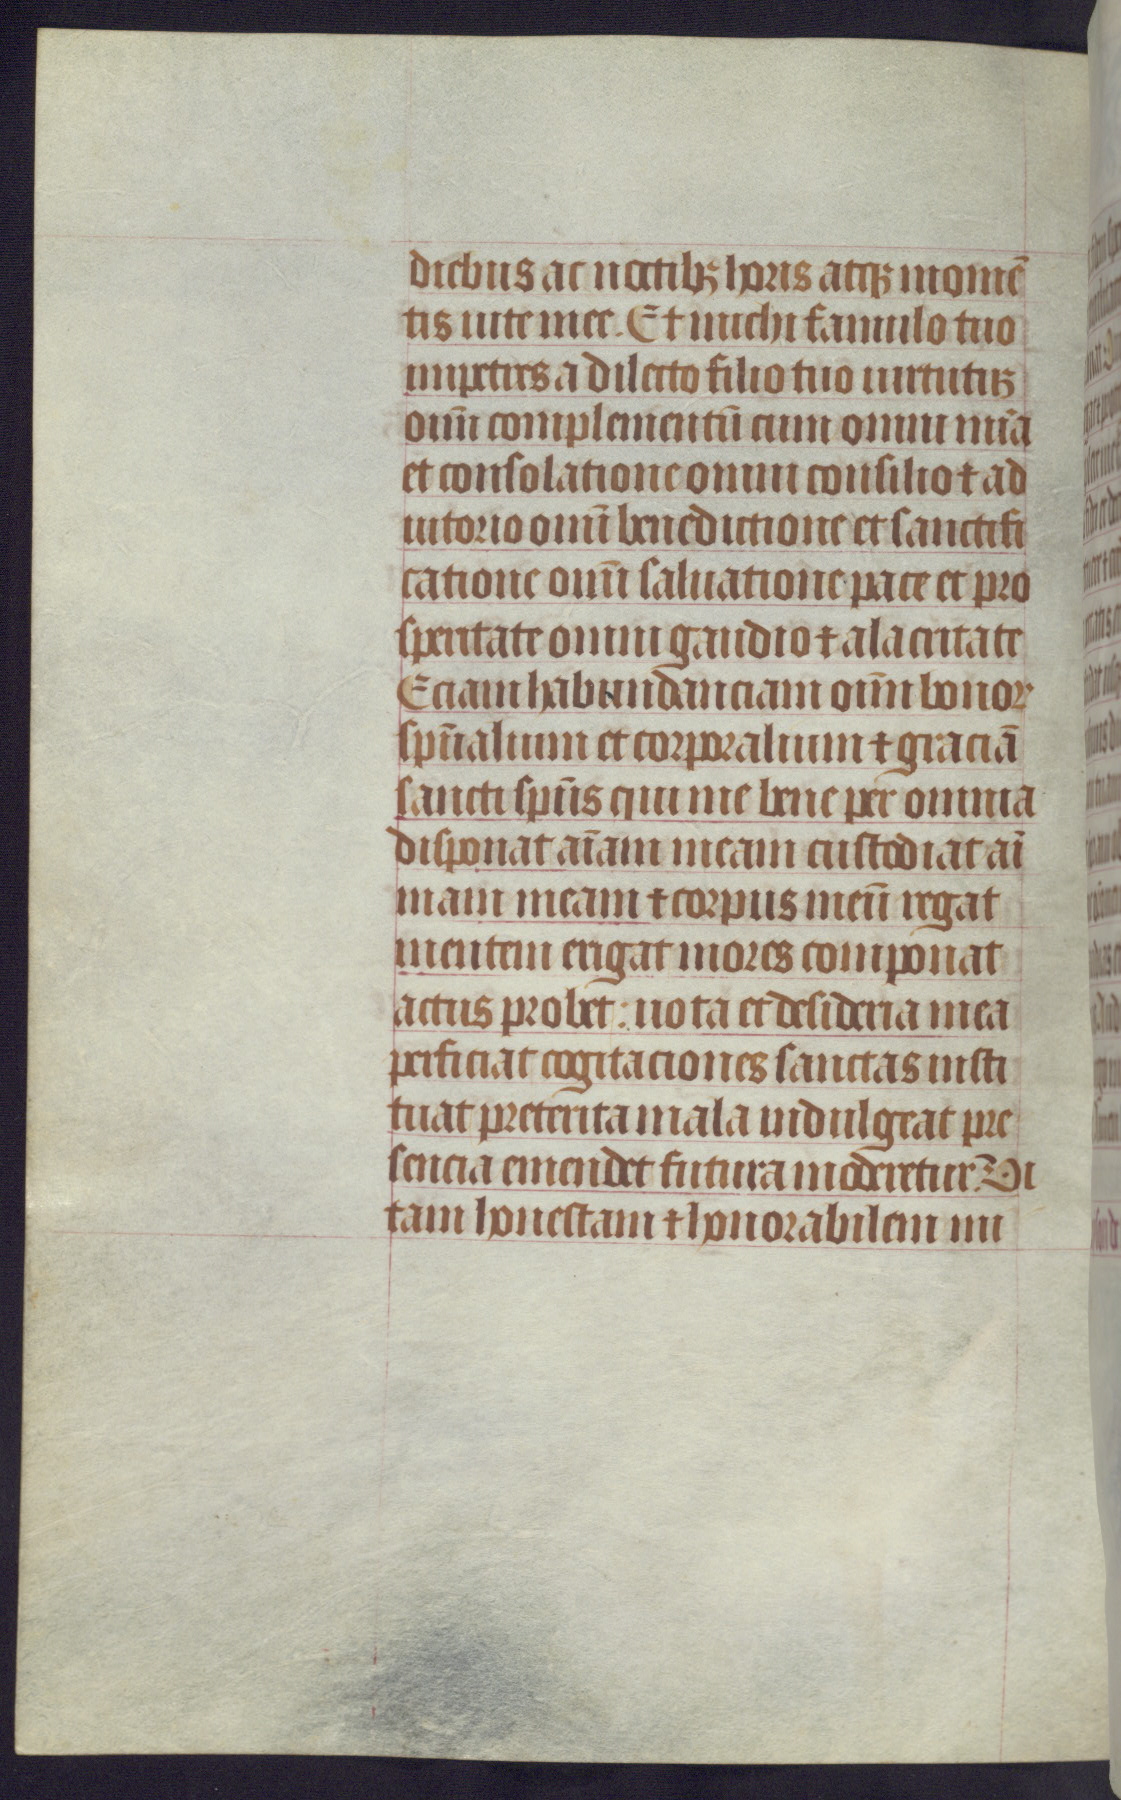 diebus ac noctibꝫ horis atqꝫ momē
tis uite mee. Et michi famulo tuo
impetres a dilecto filio tuo uirtutuꝫ
om̄i complementū cum omni mīa
et consolatione omni consilio ⁊ ad
iutorio om̄i benedictione et sanctifi
catione om̄i saluatione pace et pro
speritate omni gaudio ⁊ alacritate
Eciam habundanciam om̄i bonor
spūalium et corporalium ⁊ graciā
sancti spūs qui me bene per omnia
disponat aīam meam custodiat aī
mam meam ⁊ corpus meū regat
mentem erigat mores componat
actus probet: uota et desideria mea
perficiat cogitaciones sanctas insti
tuat preterita mala indulgeat pre
sencia emendet futura moderetur. Vi
tam honestam ⁊ honorabilem mi